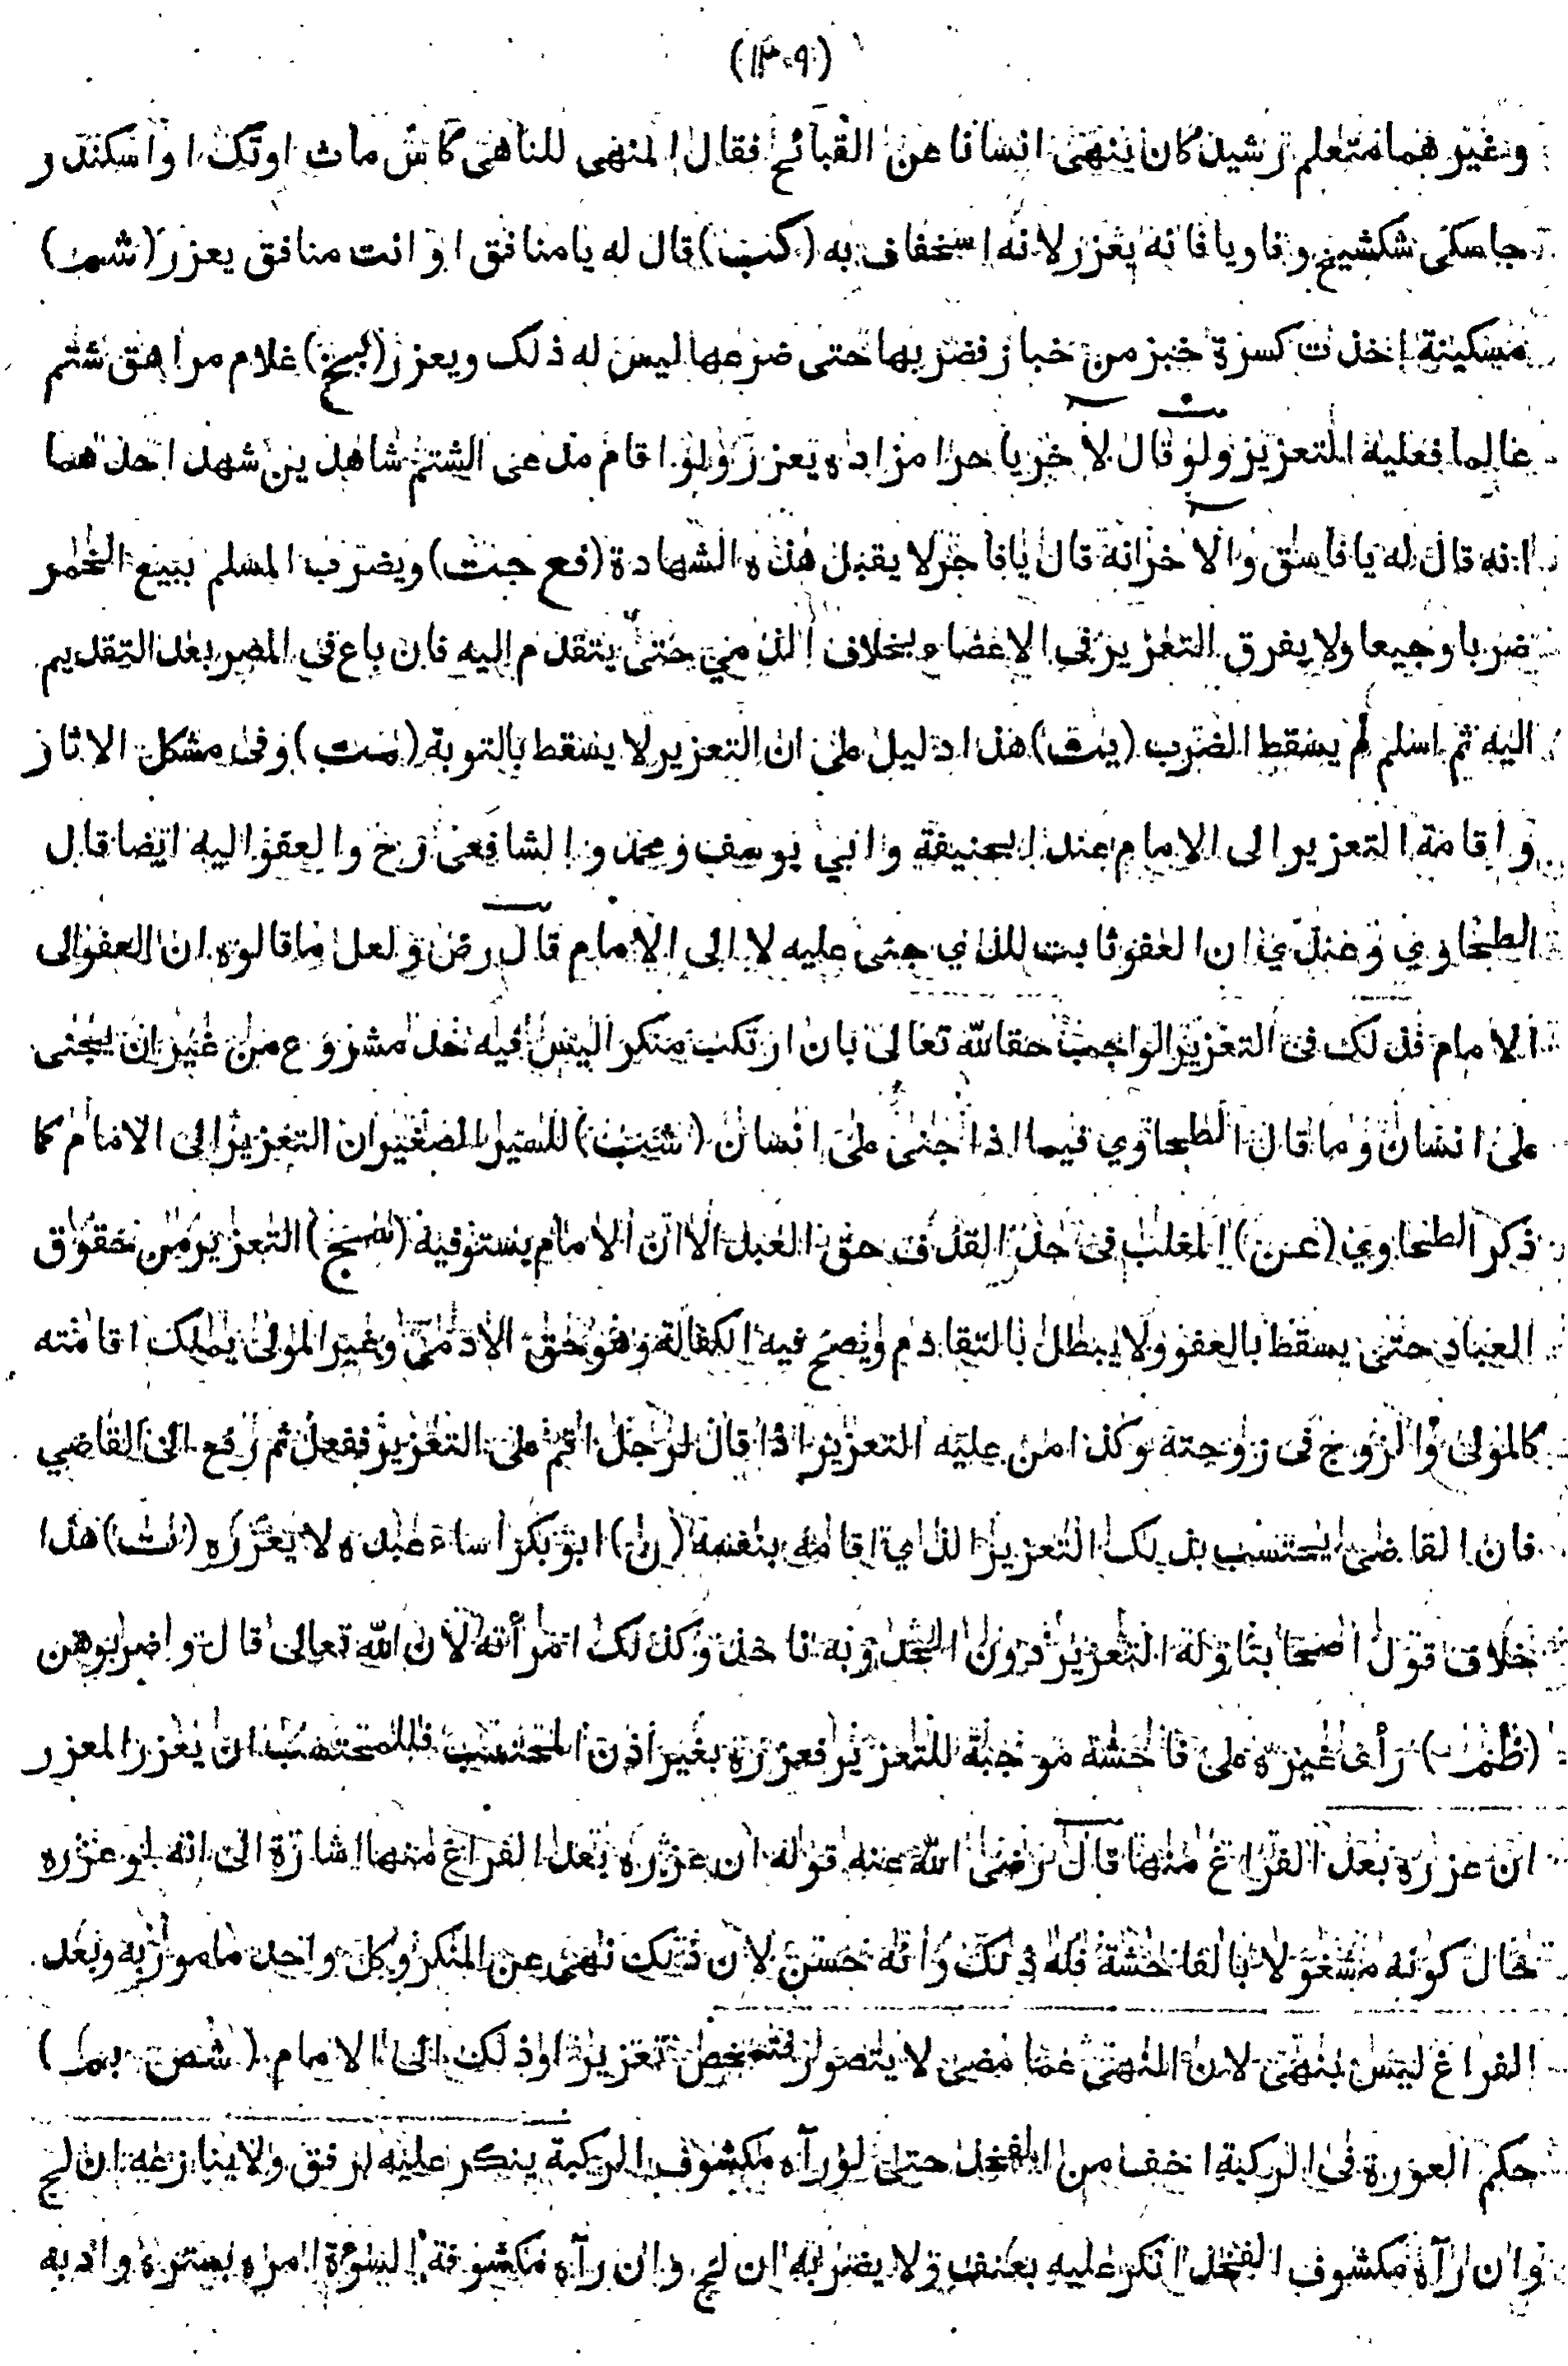 (١٣٠٩)
وغيرهما متعلم رشيد كان ينهى انسانا عن القبائح فقال المنهى للناهى كاس مات اوتك اواسكندر
جاسكى شكشيخ وفاويا فانه يعزر لانه استخفاف به (كنب) قال له يا منافق او انت منافق يعزر (شمـ)
مسكينة اخذت كسرة خبز من خباز فضربها حتى ضرعها ليس له ذلك ويعزر (بخ) غلام مراهق شتم
عالما فعليه التعزير ولو قال لآخر يا حرامزاده يعزر ولو اقام مدعى الشتم شاهدين شهد احدهما
انه قال له يا فاسق والآخر انه قال يا فاجر لا يقبل هذه الشهادة (فع جت) ويضرب المسلم ببيع الخمر
ضربا وجيعا ولا يفرق التعزير فى الاعضاء بخلاف الذمي حتى يتقدم اليه فان باع فى المصر بعد التقديم
اليه ثم اسلم لم يسقط الضرب (يت) هذا دليل على ان التعزير لا يسقط بالتوبة (مت) وفى مشكل الاثار
واقامة التعزير الى الامام عند ابيحنيفة وابي يوسف ومحمد والشافعى رح والعفو اليه ايضا قال
الطحاوي وعندي ان العفو ثابت للذي جنى عليه لا الى الامام قال رض ولعل ما قالوه ان العفو الى
الامام فذلك فى التعزير الواجب حقا لله تعالى بان ارتكب منكرا ليس فيه حد مشروع من غير ان يجنى
على انسان وما قال الطحاوي فيما اذا جنى على انسان (شب) للسير الصغير ان التعزير الى الامام كما
ذكر الطحاوي (عن) المغلب فى حد القذف حق العبد الا ان الامام يستوفيه (شبج) التعزير من حقوق
العباد حتى يسقط بالعفو ولا يبطل بالتقادم ويصح فيه الكفالة وهو حق الادمي وغير المولى يملك اقامته
كالمولى والزوج فى زوجته وكذا من عليه التعزير اذا قال لرجل اقم على التعزير ففعل ثم رفع الى القاضي
فان القاضى يحتسب بذلك التعزير الذي اقامه بنفسه (ن) ابو بكر اساء عبده لا يعزره (نت) هذا
خلاف قول اصحابنا وله التعزير دون الحد وبه ناخذ وكذلك امرأته لان الله تعالى قال واضربوهن
(ظمـ) رأى غيره على فاحشة موجبة للتعزير فعزره بغير اذن المحتسب فللمحتسب ان يعزر المعزر
ان عزره بعد الفراغ منها قال رضى الله عنه قوله ان عزره بعد الفراغ منها اشارة الى انه لو عزره
حال كونه مشغولا بالفاحشة فله ذلك وانه حسن لان ذلك نهى عن المنكر وكل واحد مامور به وبعد
الفراغ ليس بنهى لان المنهى عما مضى لا يتصور فتمحض تعزيرا وذلك الى الامام (شص بمـ)
حكم العورة فى الركبة اخف من الفخذ حتى لو رآه مكشوف الركبة ينكر عليه برفق ولا ينازعه ان لج
وان رآه مكشوف الفخذ انكر عليه بعنف ولا يضربه ان لج وان رآه مكشوفة السوءة امره بستره وادبه